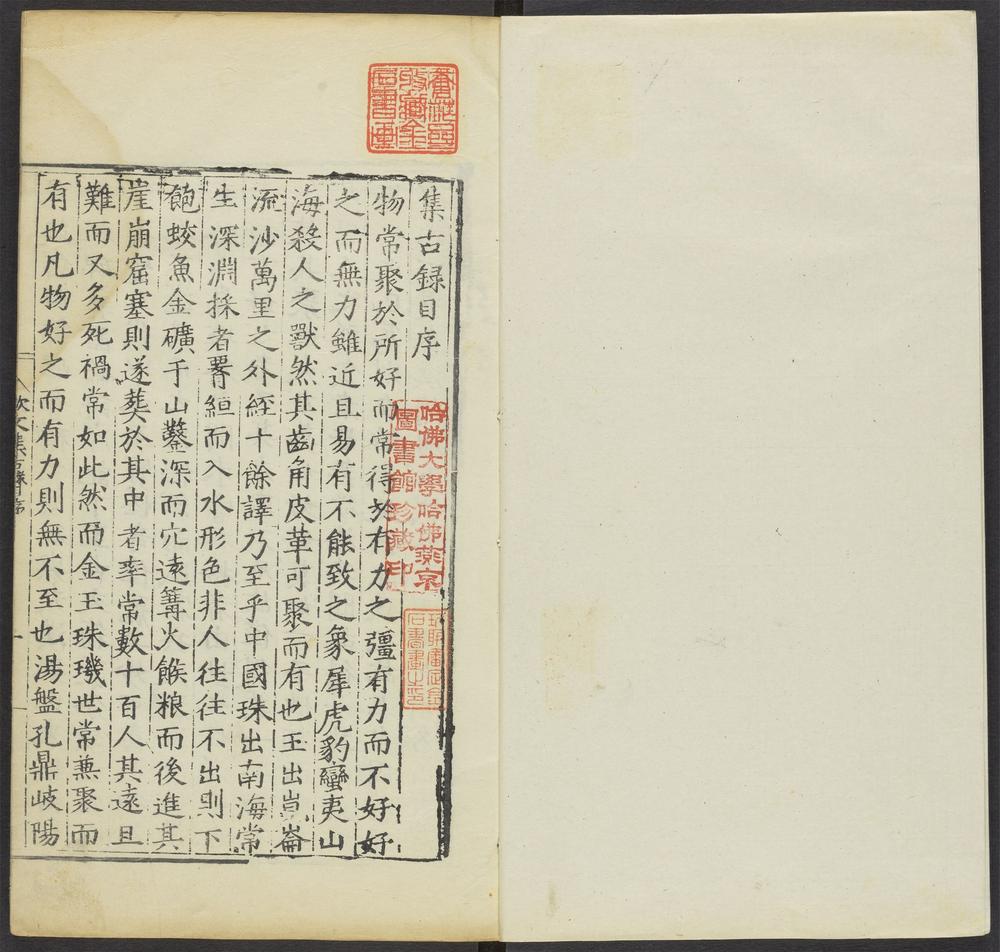 集古録目序
物常聚於所好而常得於有力之彊有力而不好好
之而無力雖近且易有不能致之象犀虎豹蠻夷山
海殺人之獸然其齒角皮革可聚而有也玉出崑崙
流沙萬里之外經十餘譯乃至乎中國珠出南海常
生深淵採者署絙而入水形色非人往往不出則下
飽蛟魚金礦于山鑿深而穴遠篝火餱粮而後進其
崖崩窟塞則遂葬於其中者率常數十百人其遠且
難而又多死禍常如此然而金玉珠璣世常蕪聚而
有也凡物好之而有力則無不至也湯盤孔鼎岐陽
哈佛大學哈佛燕京
圖書館珍藏印